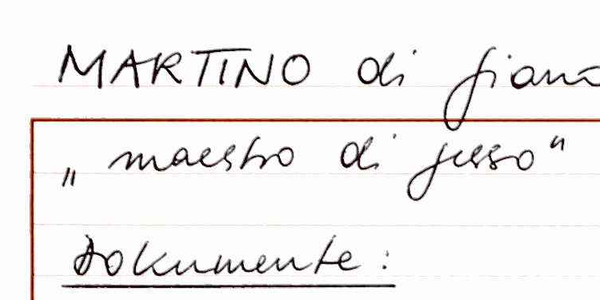 MARTINO di
„maestro di gesso“
Dokumente: